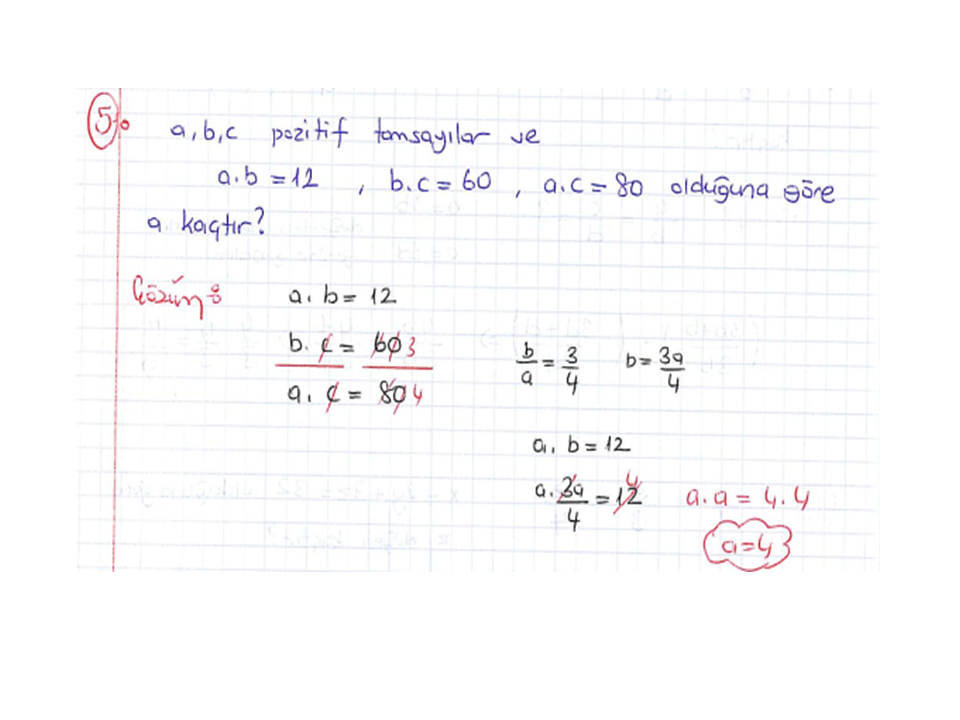 5. a, b, c pozitif tamsayılar ve
a.b = 12 , b.c = 60 , a.c = 80 olduğuna göre
a kaçtır?
Çözüm:
a. b = 12
b. c = 60 3
a. c = 80 4
b/a = 3/4 b = 3a/4
a. b = 12
a. 3a/4 = 12 4 a.a = 4.4
a=4